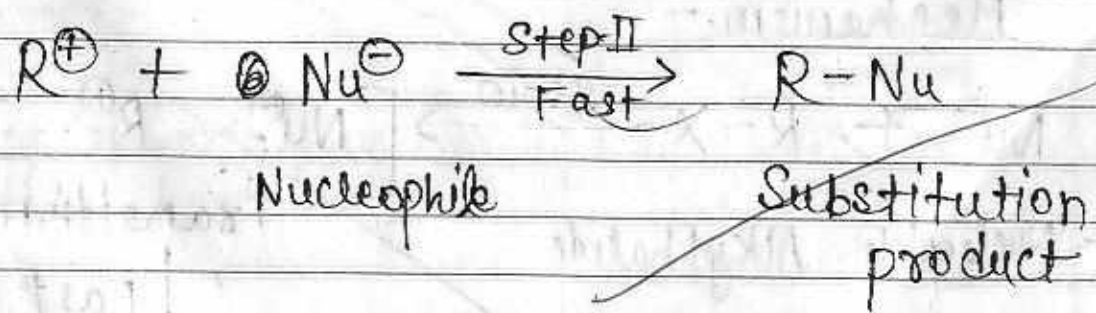 R⊕ + Nu⊖ Step-II Fast → R - Nu
Nucleophile Substitution
product